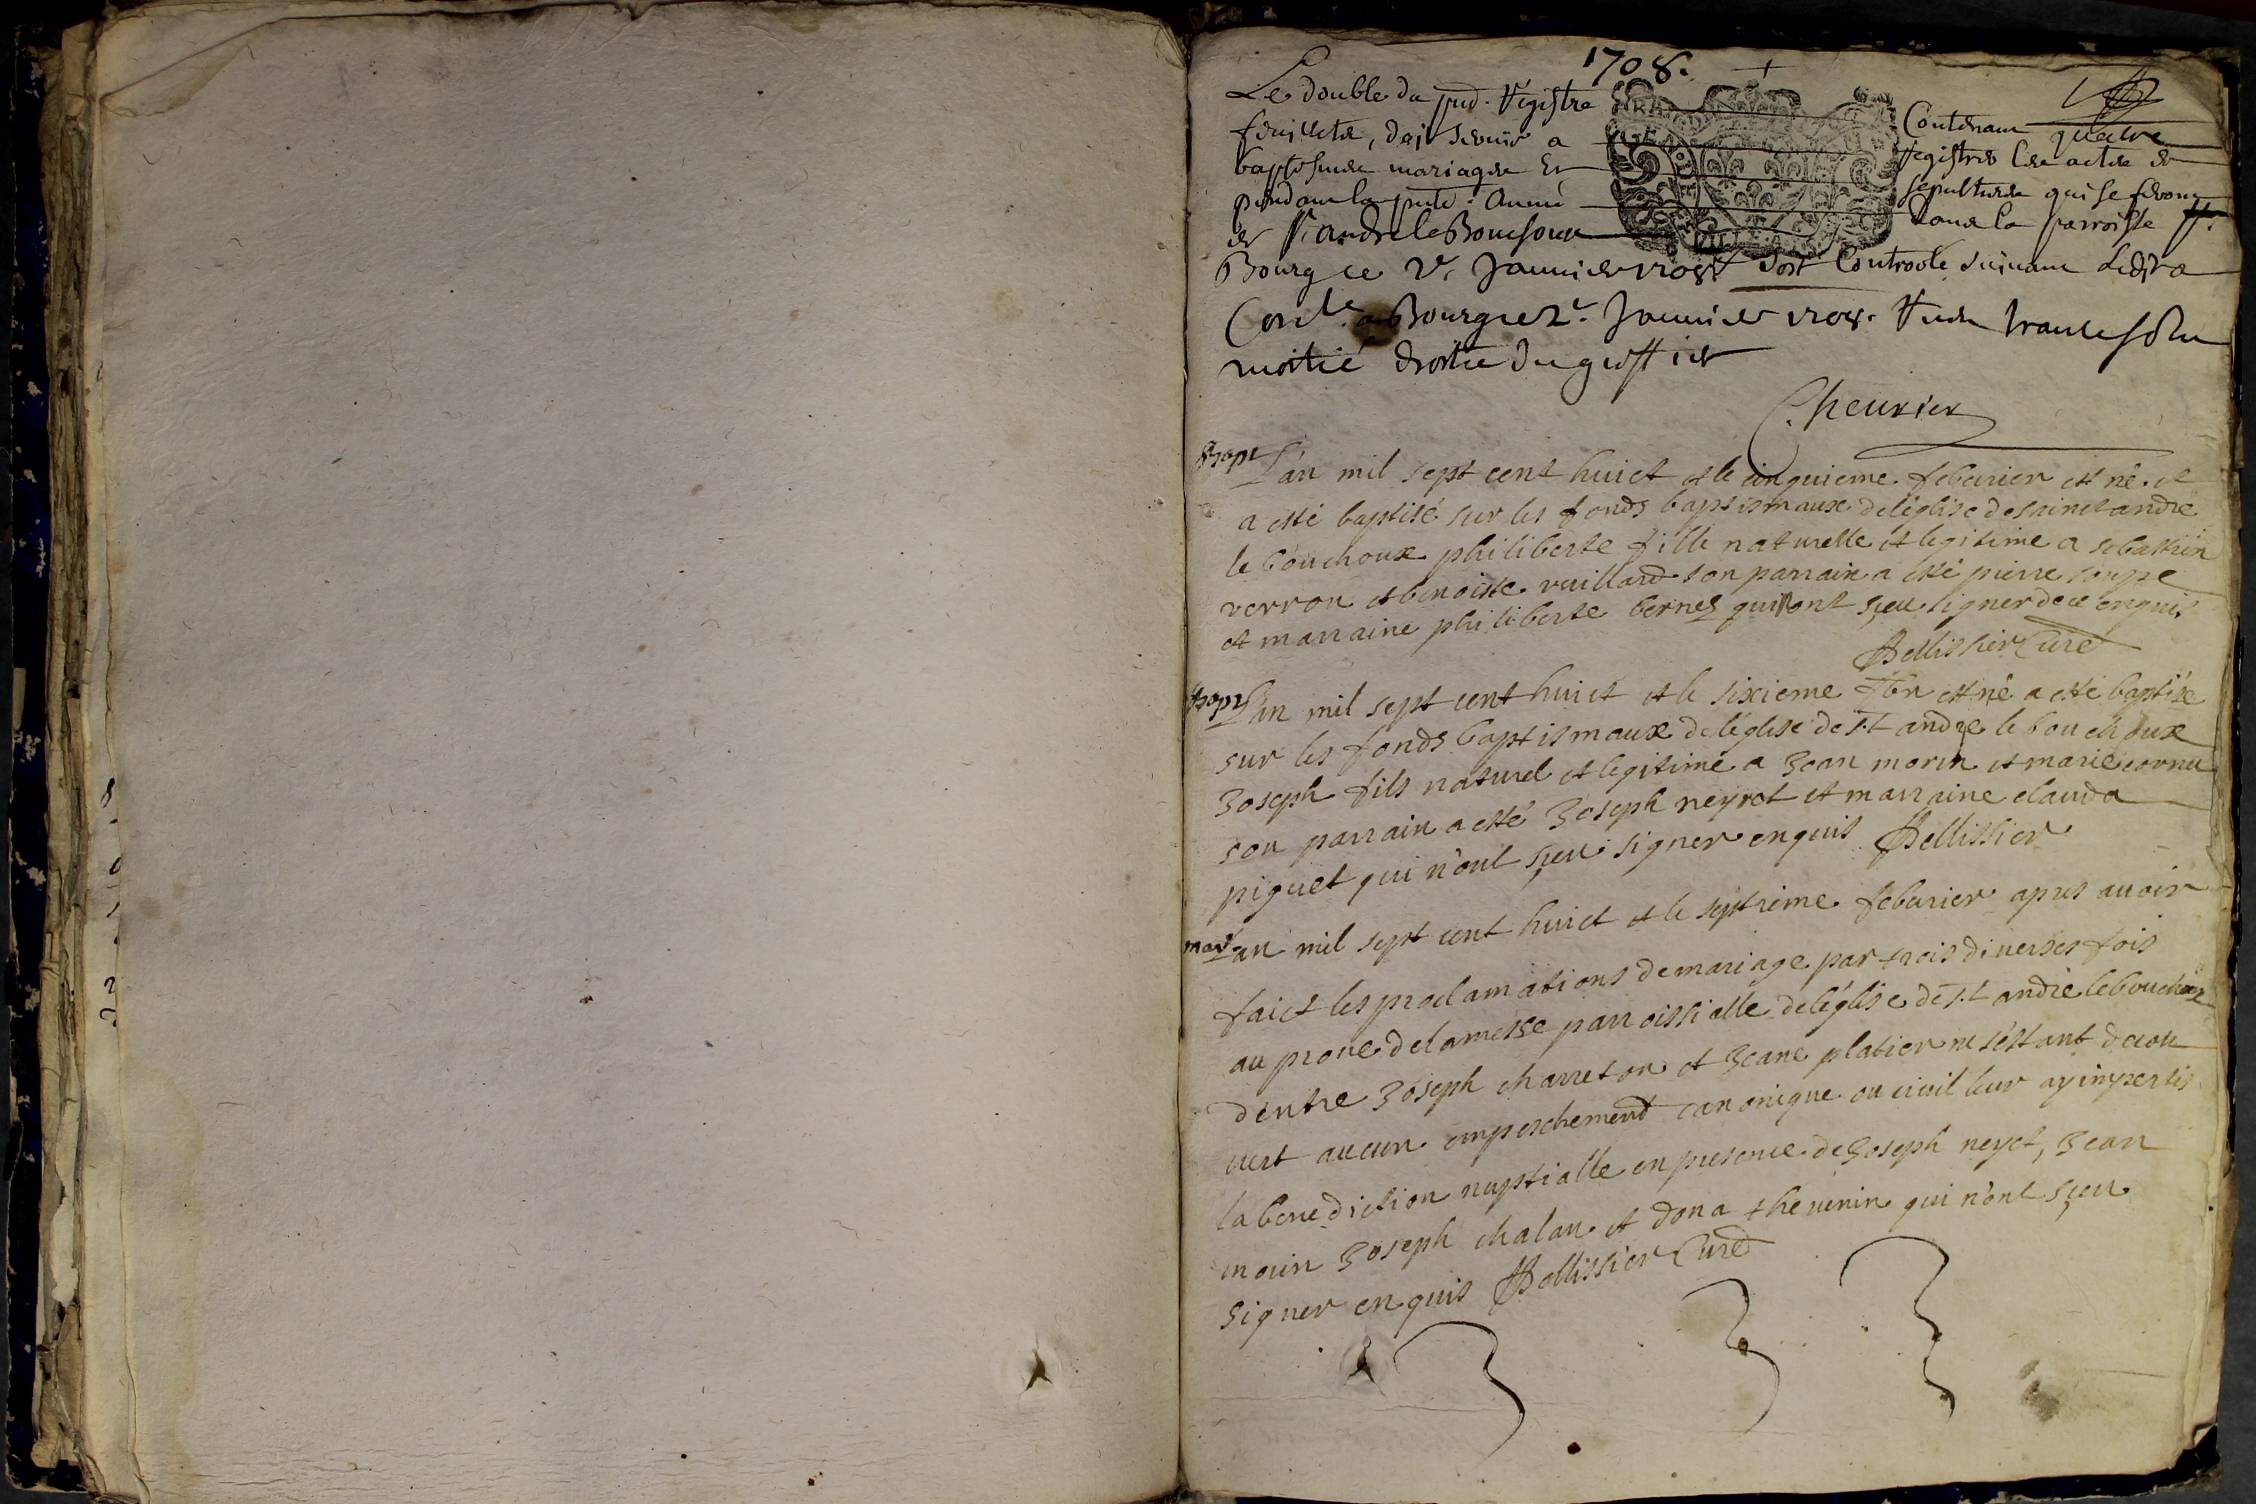 1708.
Le double du pnt. Registre Contenant quatre
feuillets, doit servir a registrer les actes de
baptesmes mariages et sepultures qui se feront
pendant la pnte. année dans la parroisse
de St. andre le Bouchoux
Bourg ce 2e. Janvier 1708 soit Controole suivant
Con.lé a Bourg ce 2e. Janvier 1708.
moitié droits du greffier
Cheurier
Bapt L'an mil sept cent huict et le cinquieme febvrier est né. et
a esté baptisé sur les fonds baptismaux de l'église de sainct andre
le bouchoux philiberte fille naturelle et legitime a sebastien
verron et benoiste vuillard son parrain a esté pierre
et marraine philiberte bernes qui n'ont sçeu signer de ce enquis
Pellissier Curé
Bapt L'an mil sept cent huict et le sixieme est né a esté baptise
sur les fonds baptismaux de l'eglise de s.t andre le bouchoux
Joseph fils naturel et legitime a Jean morin et marie cornu
son parrain a esté Joseph neyret et marraine clauda
piquet qui n'ont sçeu signer enquis Pellissier
mar L'an mil sept cent huict et le septieme febvrier apres avoir
faict les proclamations de mariage par trois diverses fois
au prone de la messe parroissialle de l'église de s.t andré le bouchoux
d'entre Joseph charreton et Jeane platier ne s'estant decou
vert aucun empeschement canonique ou civil leur ay imperti
la benediction nuptialle en presence de Joseph neyret, Jean
morin Joseph chalan et dona thevenin qui n'ont sçeu
signer enquis Pellissier Curé